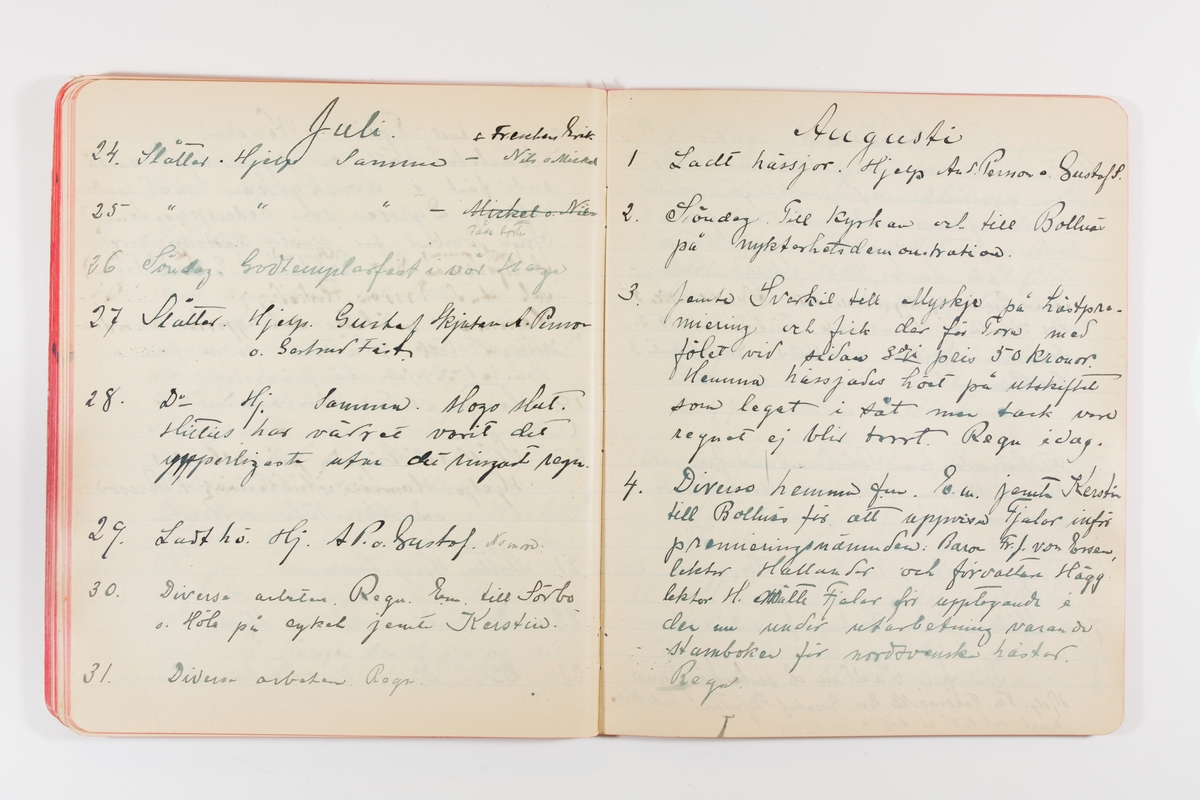 Juli.
& Freschers Erik.
24. Slåtter. Hjelp Samma — Nils o Mickel
25 " " " — Mickel o. Nils
26 Söndag. Godtemplarfest i vår Hage
27 Slåtter. Hjelp. Gustaf Skjutar A. Person
o. Gertrud Fast
28. Do Hj. Samma. Mogo slut.
Hittils har vädret varit det
ypperligaste utan det ringast regn.
29. Ladt hö. Hj. A P. o. Gustaf.
30. Diverse arbeten. Regn. E.m. till Sörbo
o. Höle på cykel jemte Kerstin.
31. Diverse arbeten. Regn.
Augusti
1 Ladt hässjor. Hjelp And. Person o. Gustaf S.
2. Söndag. Till kyrkan och till Bollnäs
på nykterhetsdemonstration.
3. Jemte Sverkil till Myskje på hästpre-
miering och fick der för Tora med
fölet vid sidan 3dje pris 50 kronor.
Hemma hässjades höet på utskiftet
som legat i såt men tack vare
regnet ej blir torrt. Regn idag.
4. Diverse hemma f.m. E.m. jemte Kerstin
till Bollnäs för att uppvisa Fjalar inför
premieringsnämnden: Baron Fr. J. von Essen,
lektor Hallander och förvaltare Hägg.
lektor H. mätte Fjalar för upptagande i
den nu under utarbetning varande
stamboken för nordsvenska hästar.
Regn.